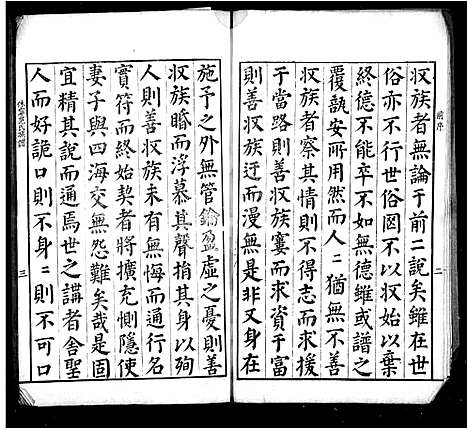 前序
二
收族者無論于前二說矣雖在世
俗亦不行世俗固不以收始以棄
終德不能卒如無德雖或譜之
覆執安所用然而人二猶無不善
收族者察其情則不得志而求援
于當路則善收族寠而求資于富
則善收族迂而漫無是非又身在
施予之外無管鑰盈虛之憂則善
收族婚而浮慕其聲捐其身以殉
人則善收族未有無悔而通行名
實符而終始契者將擴充惻隱使
妻子與四海交無怨難矣哉是固
宜精其說而通焉世之講者舍聖
人而好詭口則不身二則不可口
三